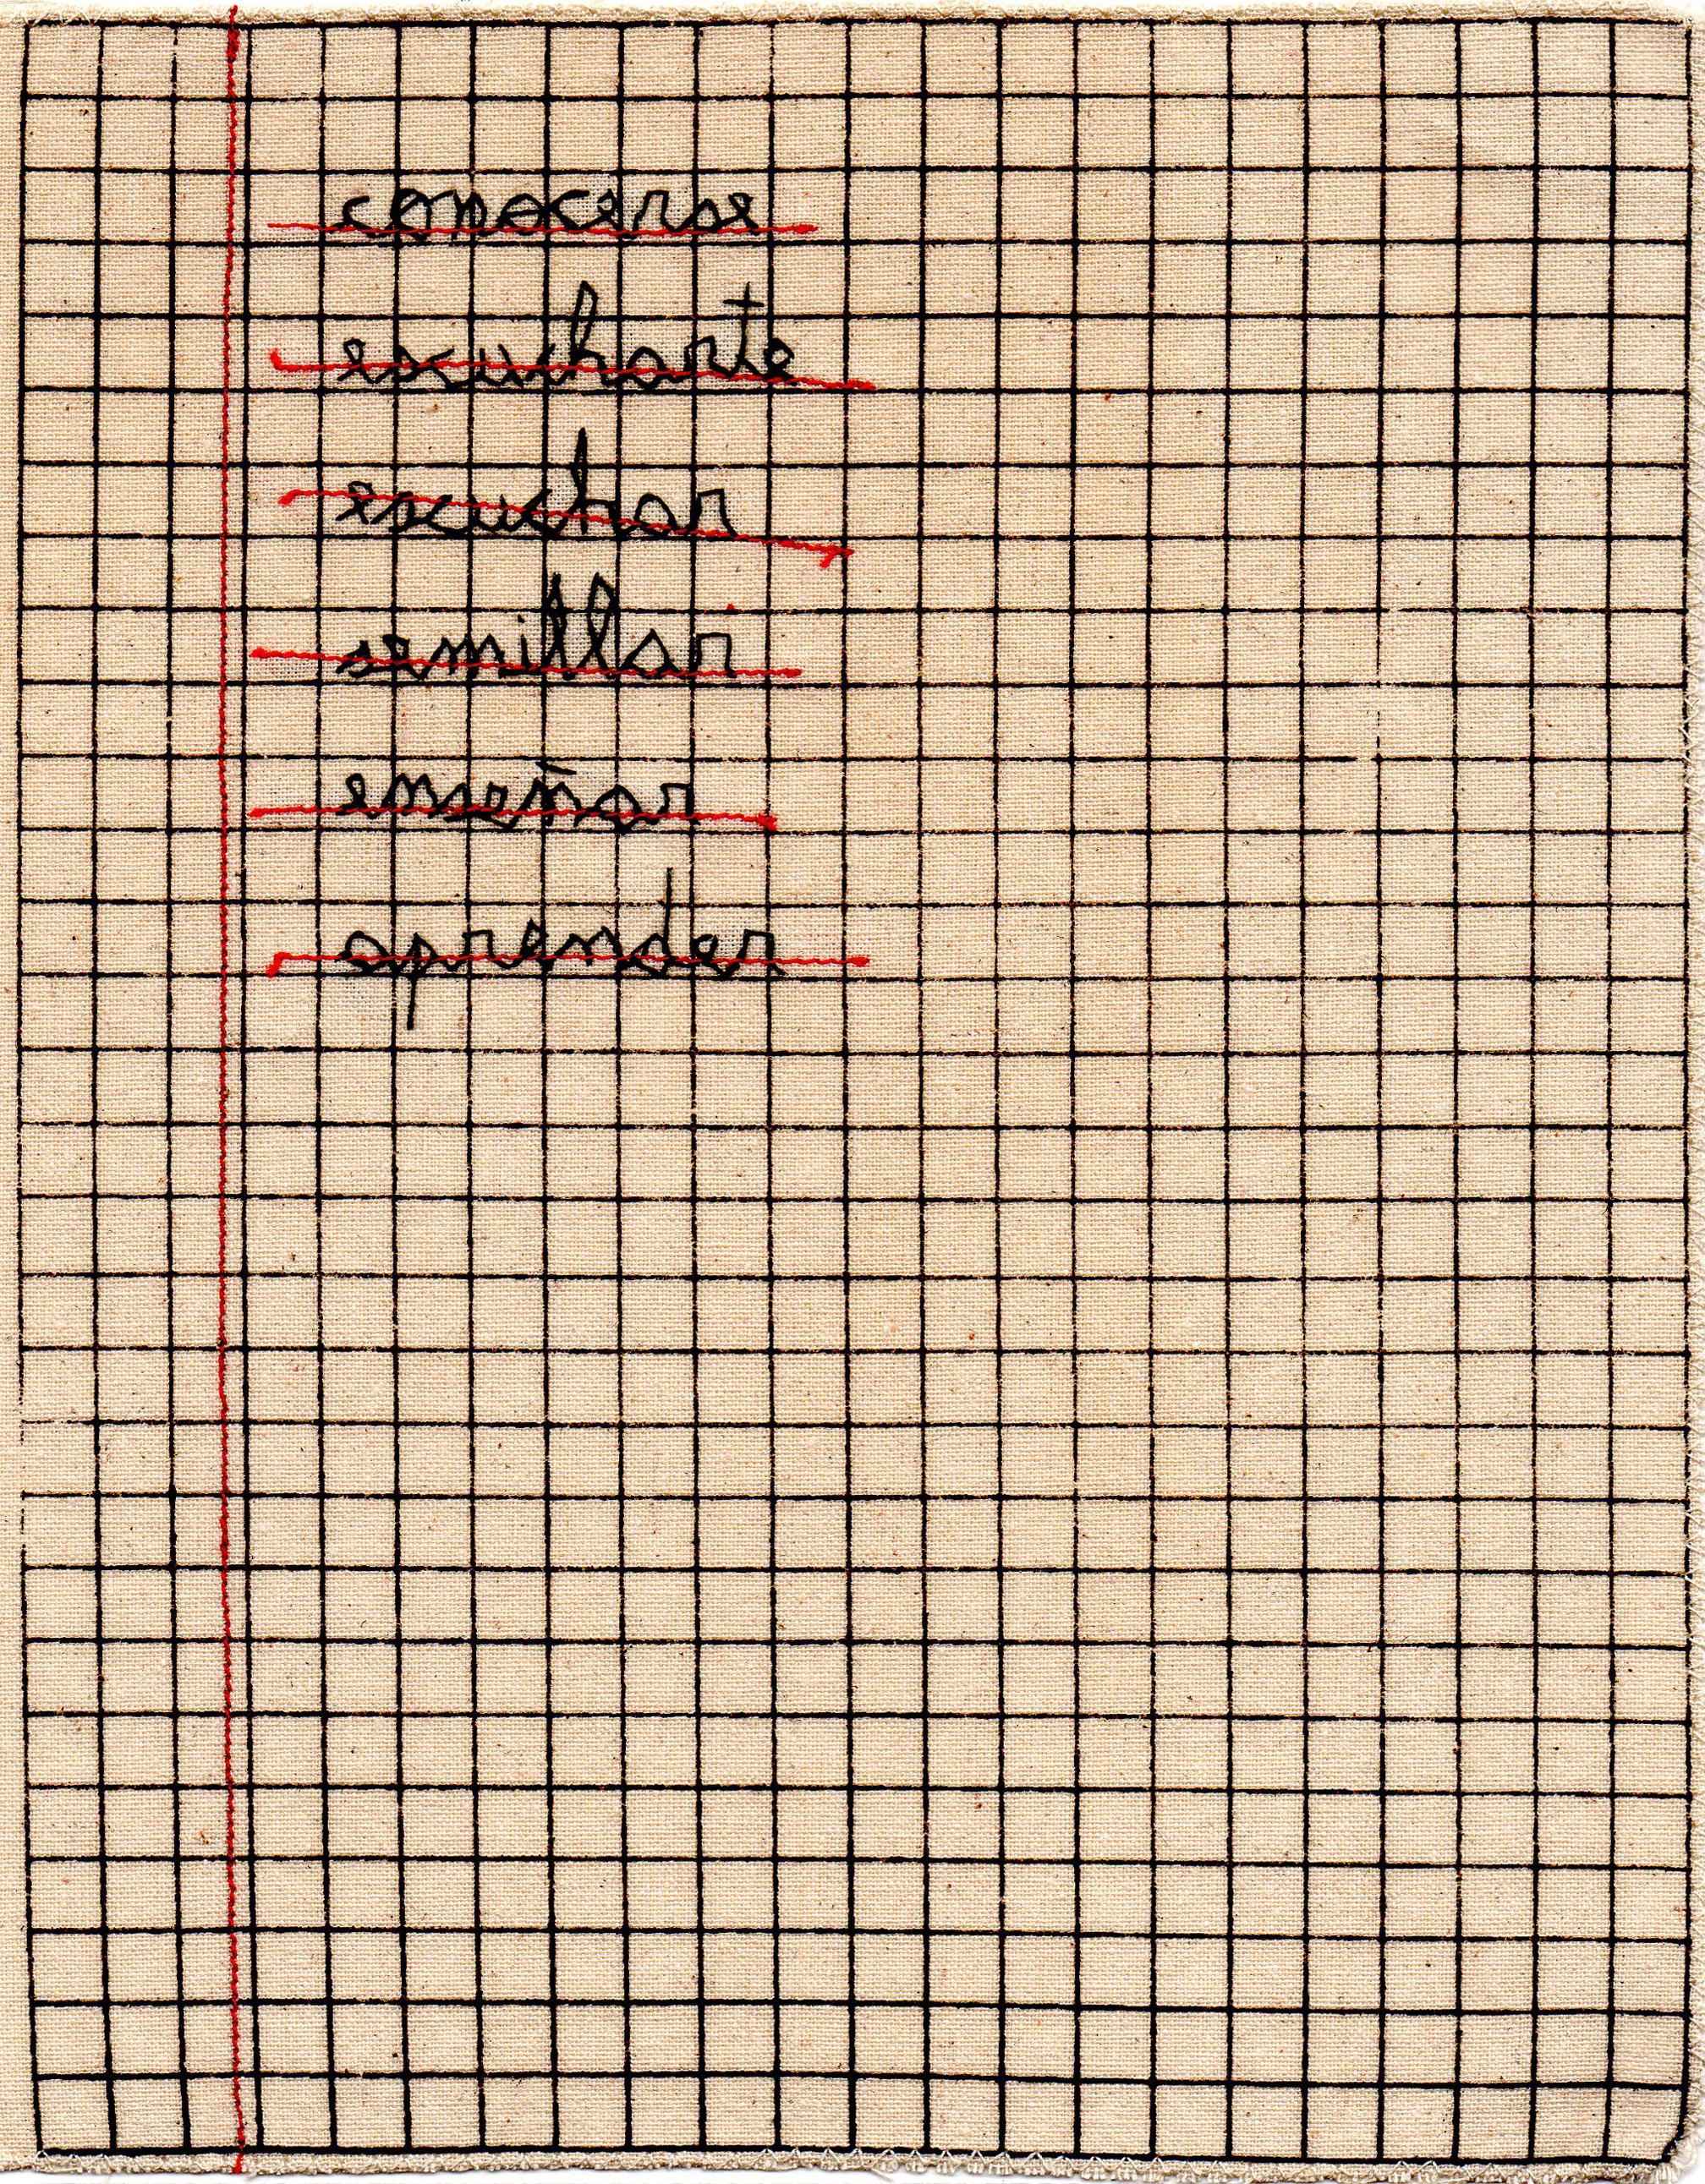 conocerse
escucharte
escuchar
semillar
enseñar
aprender